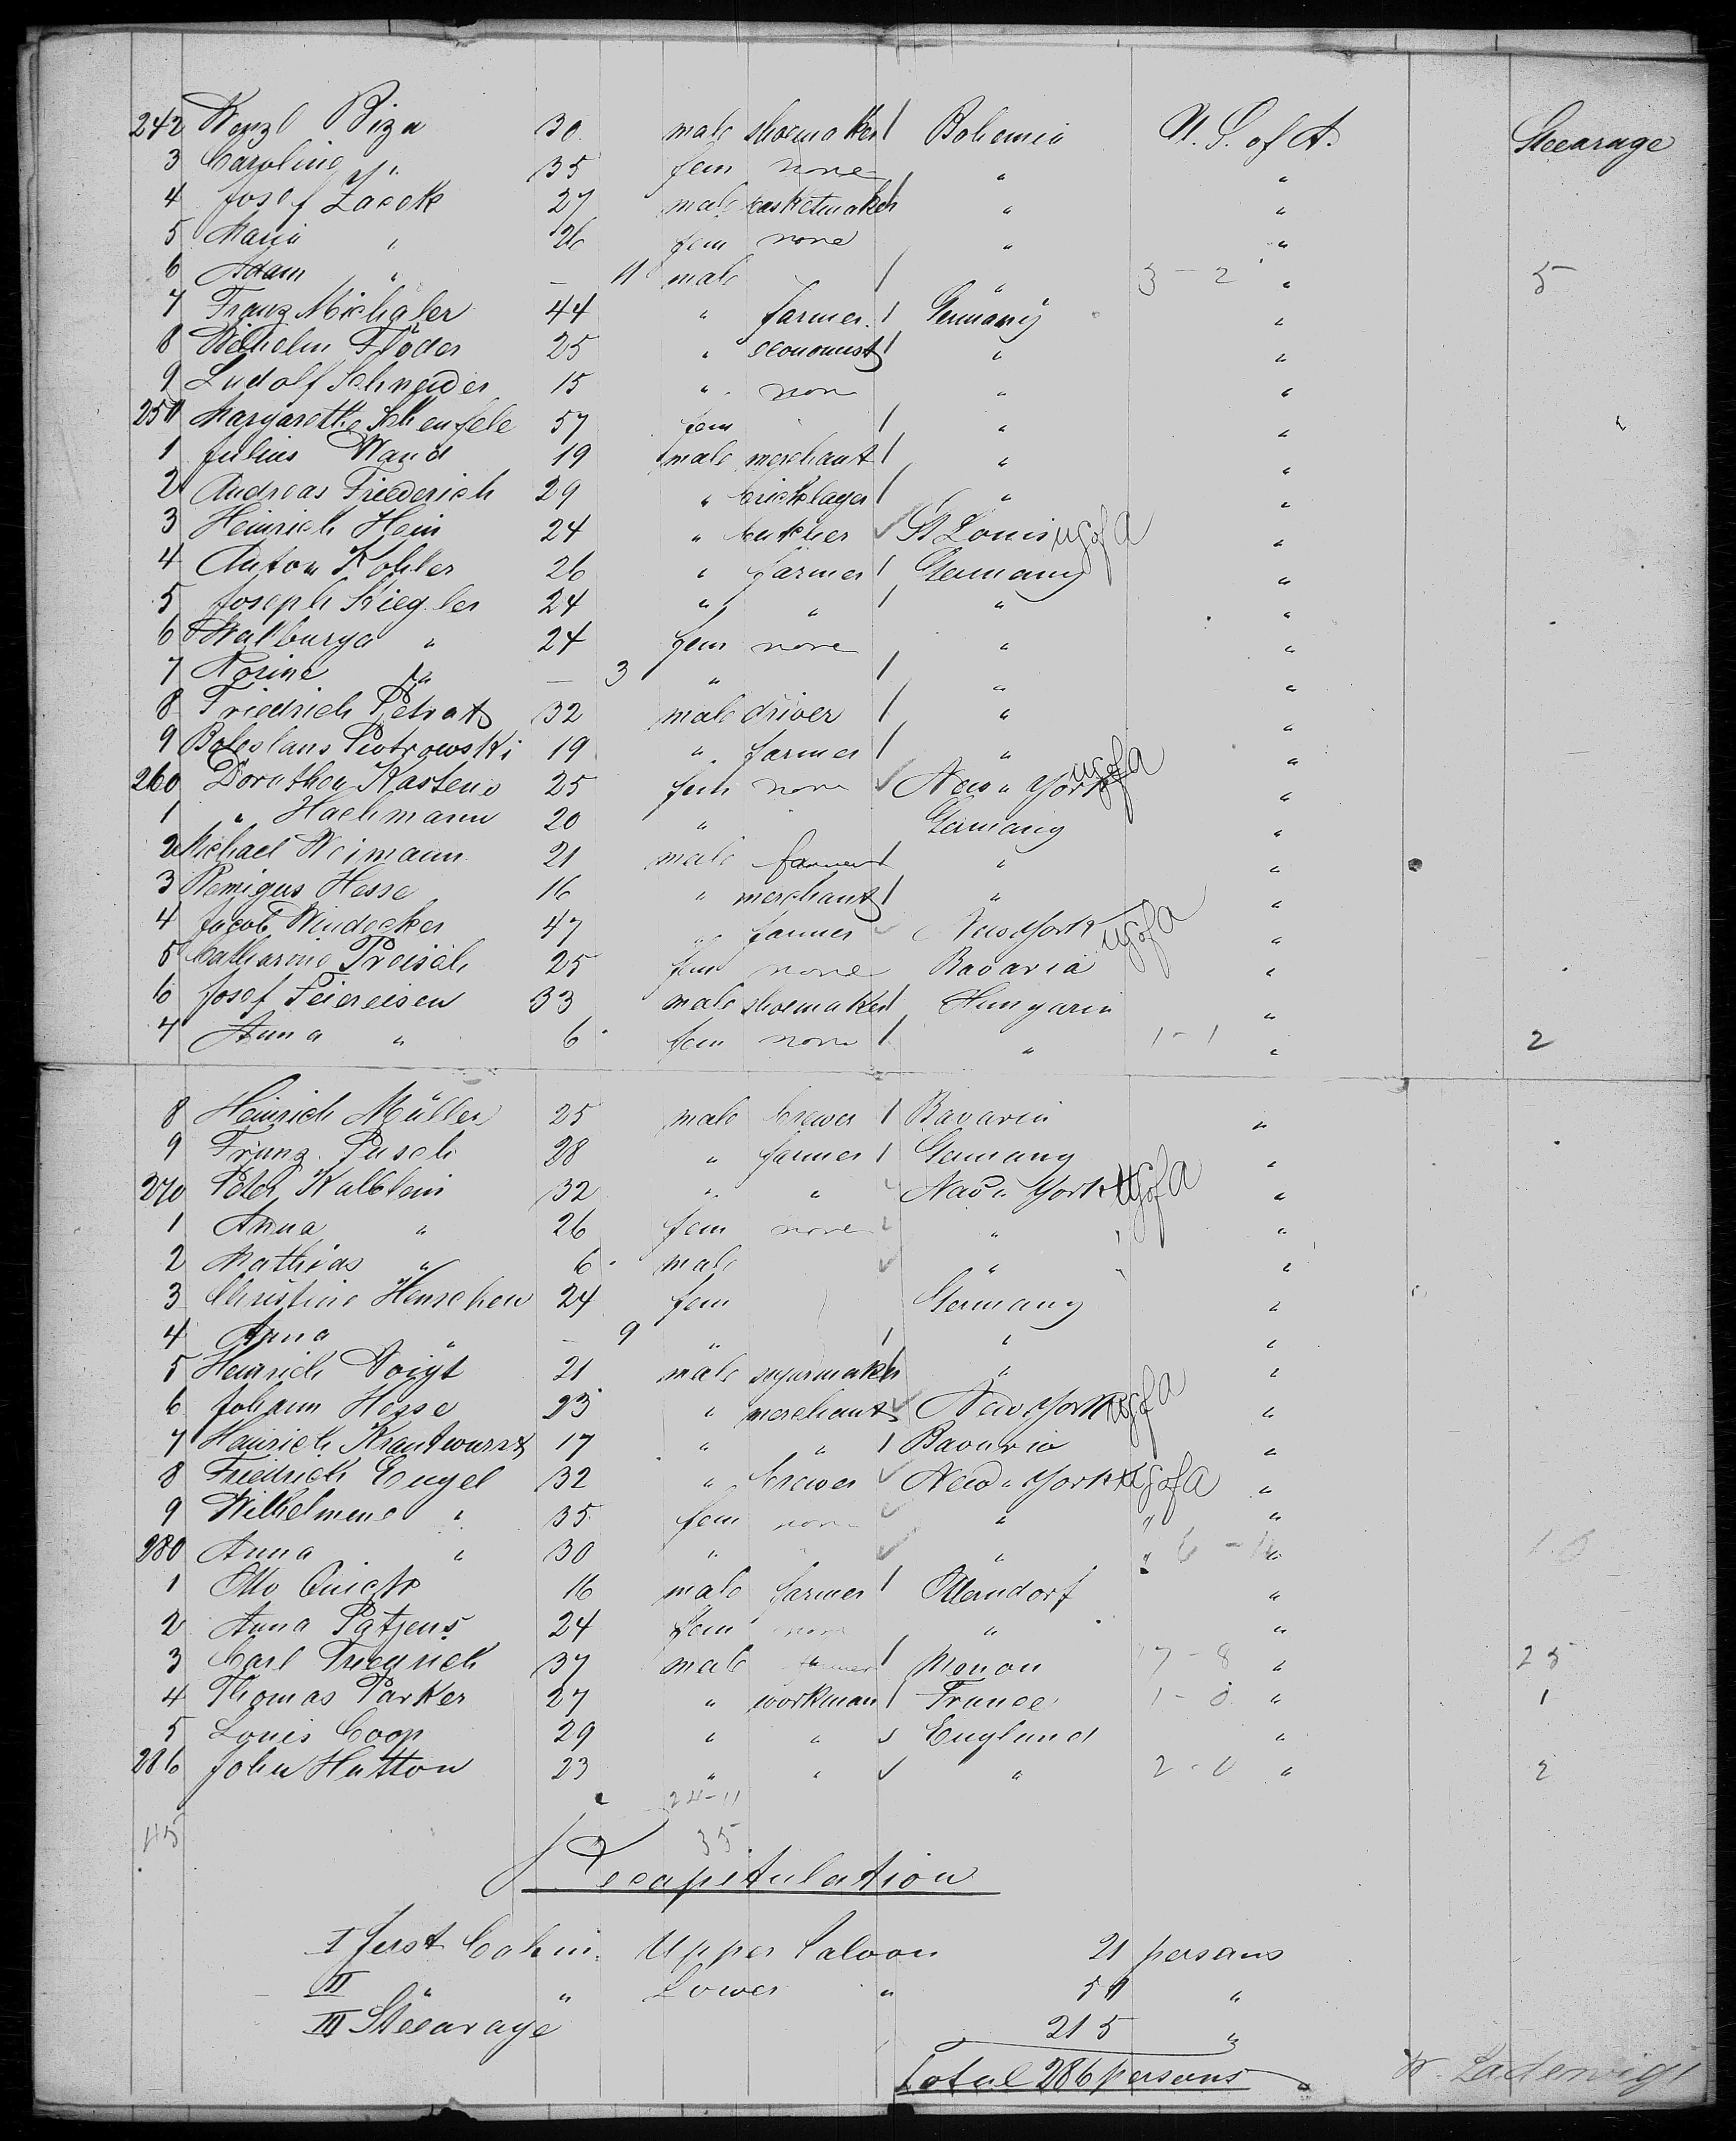 242 Wenzl Biza 30 male shoemaker Bohemia U. S. of A. Steearage
3 Caroline " 35 fem none " "
4 Josef Zacek 27 male basketmaker " "
5 Maria " 26 fem none " "
6 Adam " — 11 male " 3 - 2 " 5
7 Franz Michaler 44 " farmer Germany "
8 Wilhelm Flöder 25 " economist " "
9 Ludolf Schneider 15 " none " "
250 Margarethe 57 fem " "
1 Julius Wand 19 male merchant " "
2 Andreas Friederich 29 " bricklayer " "
3 Heinrich Hein 24 " butcher St Louis US of A "
4 Anton Kohler 26 " farmer Germany "
5 Joseph Kiegler 24 " " " "
6 Walburga " 24 fem none " "
7 Rosine " — 3 " " "
8 Friedrich Petrat 32 male driver " "
9 Boleslaus Piotrowski 19 " farmer " "
260 Dorothea Kastens 25 fem none New York US of A "
1 " Hachmann 20 " Germany "
2 Michael Weimann 21 male farmer " "
3 Remigus Hesse 16 " merchant " "
4 Jacob Windecker 47 " farmer New York US of A "
5 Catharine Preisch 25 fem none Bavaria "
6 Josef Feiereisen 33 male shoemaker Hungaria "
7 Anna " 6 fem none " 1 - 1 " 2
8 Heinrich Müller 25 male brewer Bavaria "
9 Franz Pusch 28 " farmer Germany "
270 Peter Kalbtein 32 " " New York US of A "
1 Anna " 26 fem none " "
2 Mathias " 6 male " "
3 Christine Henschen 24 fem Germany "
4 Anna " — 9 " " "
5 Heinrich Voigt 21 male sugarmaker " "
6 Johann Hesse 23 " merchant New York US of A "
7 Heinrich Krautwurst 17 " " Bavaria "
8 Friedrich Engel 32 " brewer New York US of A "
9 Wilhelmine " 35 fem none " " "
280 Anna " 30 " " " 6 - "
1 Otto Quick 16 male farmer Otterndorf "
2 Anna Patjens 24 fem none " "
3 Carl Friedrich 37 male farmer 17 - 8 " 25
4 Thomas Parker 27 " workman France 1 - 0 " 1
5 Louis Coop 29 " " England "
286 John Hutton 23 " " " 2 - 0 " 2
24 - 11
45 35
Recapitulation
I first Cabin. Upper Saloon 21 persons
II " " Lower " 50 "
III Steearage 215 "
Total 286 persons
W. Ladewigs